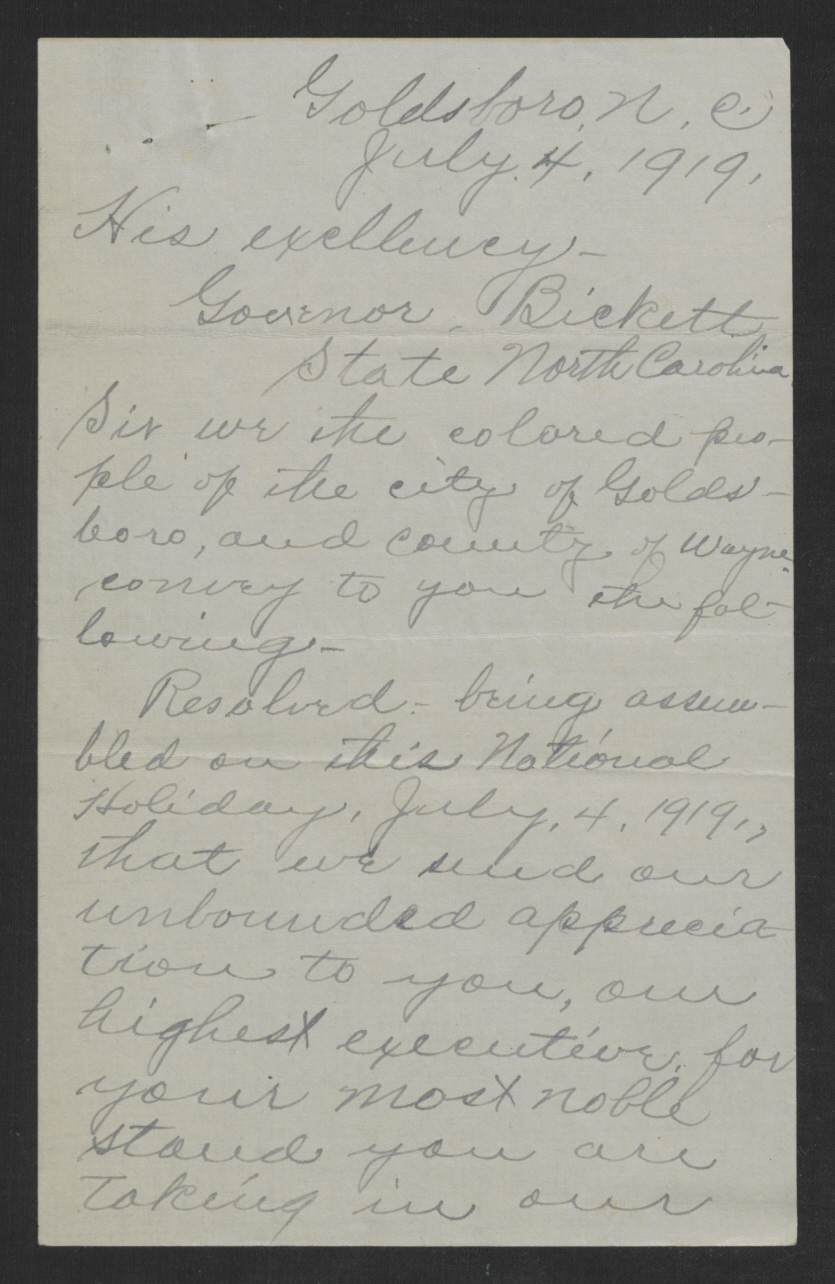 Goldsboro, N, C,
July. 4, 1919,
His exellency-
Govenor, Bickett
State North Carolina
Sir we the colored peo-
ple of the city of Golds-
boro, and county of Wayne
convey to you the fol-
lowing-
Resolved- being assem-
bled on this National
Holiday, July, 4, 1919,,
that we send our
unbounded apprecia-
tion to you, our
highest executive, for
your most noble
stand you are
taking in our